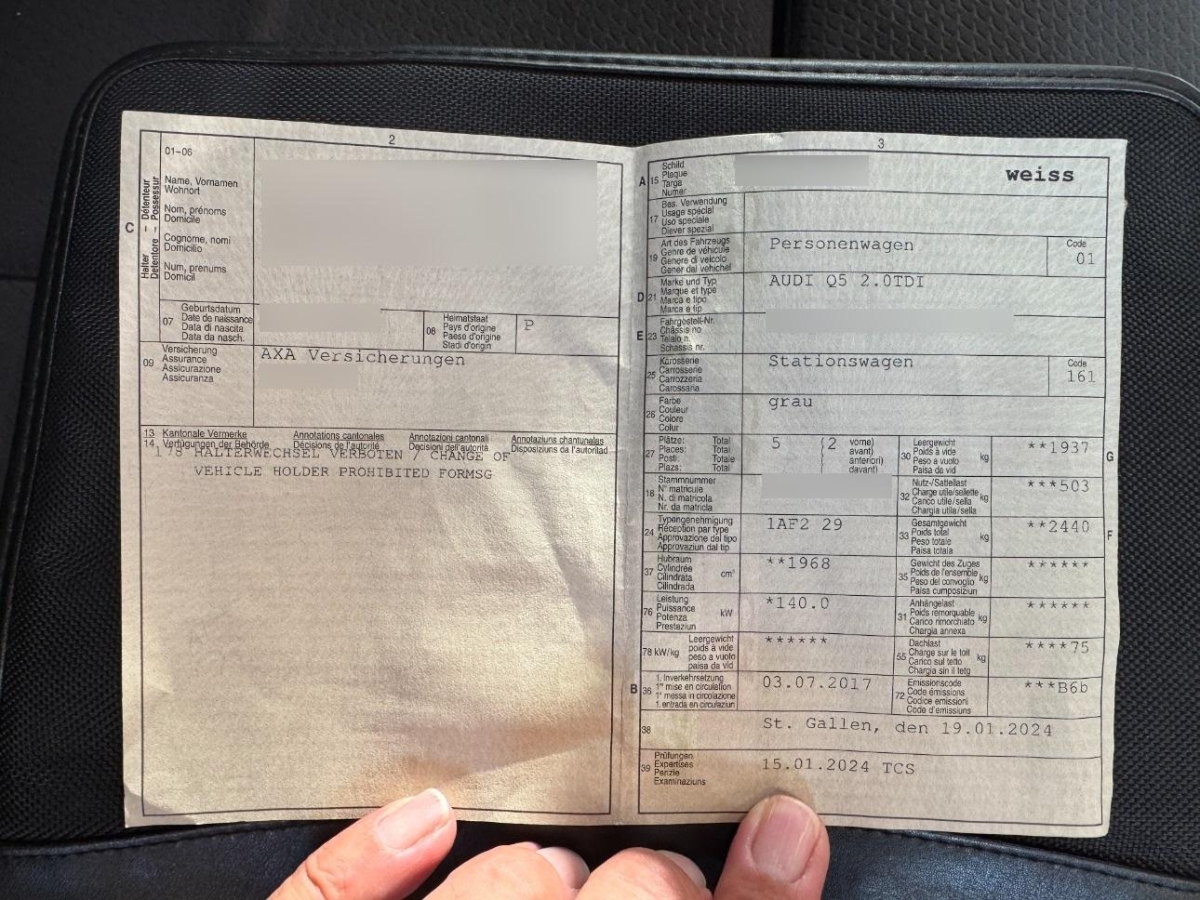 2
01-06
C
Halter - Détenteur
Detentore - Possessur
Name, Vornamen
Wohnort
Nom, prénoms
Domicile
Cognome, nomi
Domicilio
Num, prenums
Domicil
07
Geburtsdatum
Date de naissance
Data di nascita
Data da nasch.
08
Heimatstaat
Pays d'origine
Paese d'origine
Stadi d'origin
P
09
Versicherung
Assurance
Assicurazione
Assicuranza
AXA Versicherungen
13 Kantonale Vermerke Annotations cantonales Annotazioni cantonali Annotaziuns chantunalas
14 Verfügungen der Behörde Décisions de l'autorité Decisioni dell'autorità Disposiziuns da l'autoritad
178 HALTERWECHSEL VERBOTEN / CHANGE OF
VEHICLE HOLDER PROHIBITED FORMSG
3
A 15
Schild
Plaque
Targa
Numer
weiss
17
Bes. Verwendung
Usage spécial
Uso speciale
Diever spezial
19
Art des Fahrzeugs
Genre de véhicule
Genere di veicolo
Gener dal vehichel
Personenwagen
Code
01
D 21
Marke und Typ
Marque et type
Marca e tipo
Marca e tip
AUDI Q5 2.0TDI
E 23
Fahrgestell-Nr.
Châssis no
Telaio n.
Schassis nr.
25
Karosserie
Carrosserie
Carrozzeria
Carossaria
Stationswagen
Code
161
26
Farbe
Couleur
Colore
Colur
grau
27
Plätze: Total
Places: Total
Posti: Totale
Plazs: Total
5 (2
vorne)
avant)
anteriori)
davant)
30
Leergewicht
Poids à vide
Peso a vuoto
Paisa da vid
kg
**1937
G
18
Stammnummer
N° matricule
N. di matricola
Nr. da matricla
32
Nutz-/Sattellast
Charge utile/sellette
Carico utile/sella
Chargia utila/sella
kg
***503
24
Typengenehmigung
Réception par type
Approvazione del tipo
Approvaziun dal tip
1AF2 29
33
Gesamtgewicht
Poids total
Peso totale
Paisa totala
kg
**2440
F
37
Hubraum
Cylindrée
Cilindrata
Cilindrada
cm³
**1968
35
Gewicht des Zuges
Poids de l'ensemble
Peso del convoglio
Paisa cumposiziun
kg
******
76
Leistung
Puissance
Potenza
Prestaziun
kW
*140.0
31
Anhängelast
Poids remorquable
Carico rimorchiato
Chargia annexa
kg
******
78 kW/kg
Leergewicht
poids à vide
peso a vuoto
paisa da vid
******
55
Dachlast
Charge sur le toit
Carico sul tetto
Chargia sin il tetg
kg
****75
B 36
1. Inverkehrsetzung
1re mise en circulation
1a messa in circolazione
1. entrada en circulaziun
03.07.2017
72
Emissionscode
Code émissions
Codice emissioni
Code d'emissiuns
***B6b
38
St. Gallen, den 19.01.2024
39
Prüfungen
Expertises
Perizie
Examinaziuns
15.01.2024 TCS